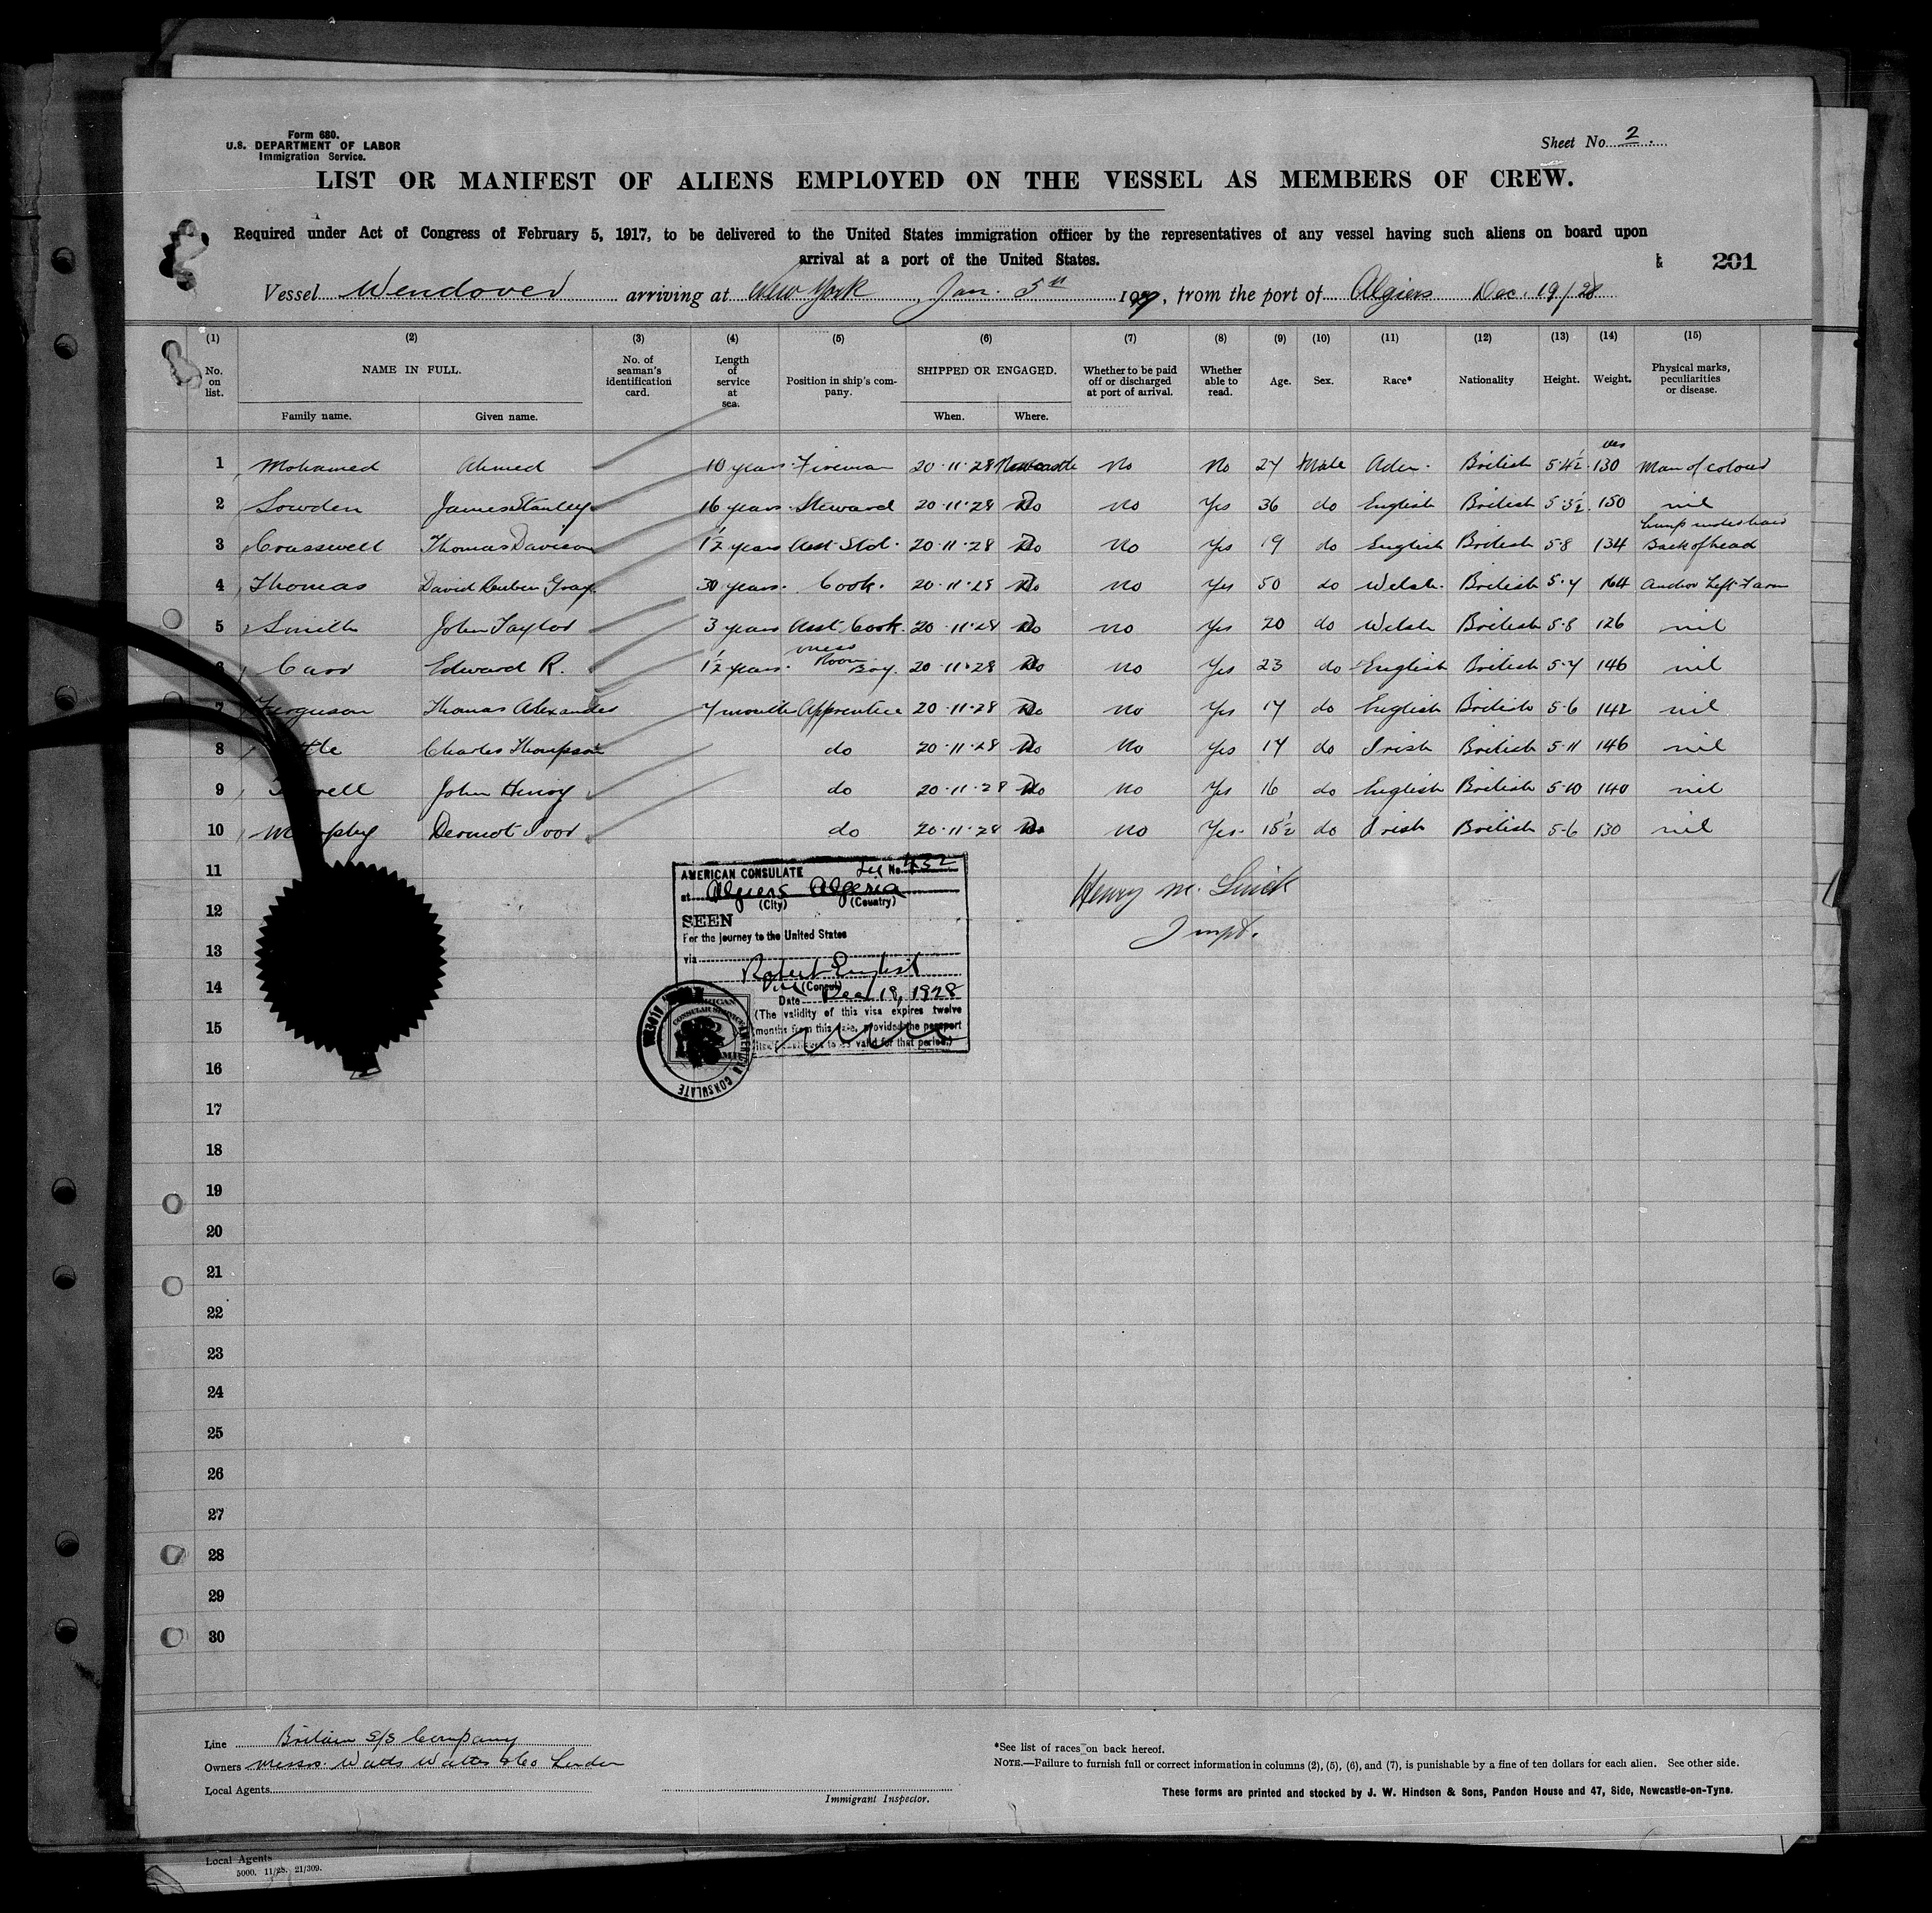 Form 680.
U.S. DEPARTMENT OF LABOR
Immigration Service.
Sheet No. 2.
LIST OR MANIFEST OF ALIENS EMPLOYED ON THE VESSEL AS MEMBERS OF CREW.
Required under Act of Congress of February 5, 1917, to be delivered to the United States immigration officer by the representatives of any vessel having such aliens on board upon
arrival at a port of the United States.
201
Vessel Wendover arriving at New York, Jan. 5th 1929, from the port of Algiers Dec. 19/28
(1) (2) (3) (4) (5) (6) (7) (8) (9) (10) (11) (12) (13) (14) (15)
No. on list. NAME IN FULL. No. of seaman's identification card. Length of service at sea. Position in ship's company. SHIPPED OR ENGAGED. Whether to be paid off or discharged at port of arrival. Whether able to read. Age. Sex. Race* Nationality Height. Weight. Physical marks, peculiarities or disease.
Family name. Given name. When. Where.
1 Mohamed Ahmed 10 years Fireman 20·11·28 Newcastle No No 27 Male Aden British 5·4½ 130 Man of colour
2 Sowden James Stanley 16 years Steward 20·11·28 Do No Yes 36 do English British 5·3½ 150 nil
3 Crasswell Thomas Davison 1½ years Asst Std. 20·11·28 Do No Yes 19 do English British 5·8 134 Lump under hair Back of head
4 Thomas David Reuben Gray 30 years Cook. 20·11·28 Do No Yes 50 do Welsh British 5·7 164 Anchor Left F arm
5 Smith John Taylor 3 years Asst Cook. 20·11·28 Do No Yes 20 do Welsh British 5·8 126 nil
6 Carr Edward R. 1½ years Mess Room Boy. 20·11·28 Do No Yes 23 do English British 5·7 146 nil
7 Ferguson Thomas Alexander 7 months Apprentice 20·11·28 Do No Yes 17 do English British 5·6 142 nil
8 Charles Thompson do 20·11·28 Do No Yes 17 do Irish British 5·11 146 nil
9 John Henry do 20·11·28 Do No Yes 16 do English British 5·10 140 nil
10 Dermot do 20·11·28 Do No Yes 15½ do Irish British 5·6 130 nil
11
12
13
14
15
16
17
18
19
20
21
22
23
24
25
26
27
28
29
30
AMERICAN CONSULATE No. 432
at Algiers Algeria
(City) (Country)
SEEN
For the journey to the United States
via
Robert English
Vice (Consul)
Date Dec 18, 1928
(The validity of this visa expires twelve
months from this date, provided the passport
valid for that period.)
AMERICAN CONSULATE
Henry M.
Line Britain S/S Company
Owners Messrs. Watts Watts & Co London
Local Agents
Immigrant Inspector.
*See list of races on back hereof.
NOTE.—Failure to furnish full or correct information in columns (2), (5), (6), and (7), is punishable by a fine of ten dollars for each alien. See other side.
These forms are printed and stocked by J. W. Hindson & Sons, Pandon House and 47, Side, Newcastle-on-Tyne.
Local Agents
5000. 11/28. 21/309.